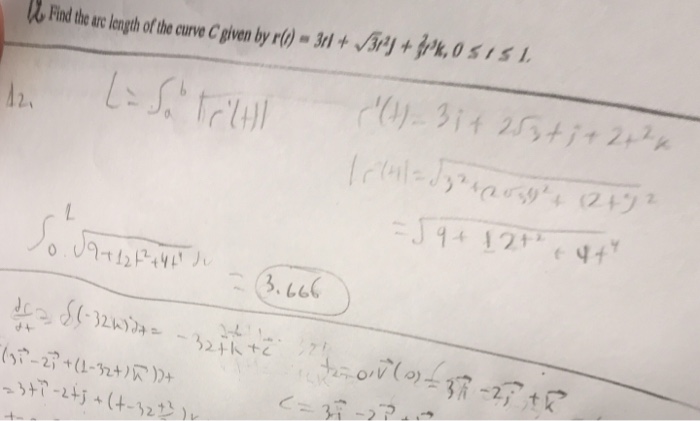 12. Find the arc length of the curve C given by r(t) = 3ti + √3t²j + ⅔t³k, 0 ≤ t ≤ 1.
12. L = ∫ₐᵇ |r'(t)|
r'(t) = 3i + 2√3tj + 2t²k
|r'(t)| = √3² + (2√3t)² + (2t²)²
= √9 + 12t² + 4t⁴
∫₀¹ √9+12t²+4t⁴ = 3.666
= ∫(-32k)dt = -32tk + c
t=0, v(0) = 3i - 2j + k
(3i - 2j + (1-32t)k)dt
c = 3i - 2j
= 3ti - 2tj + (t - 32